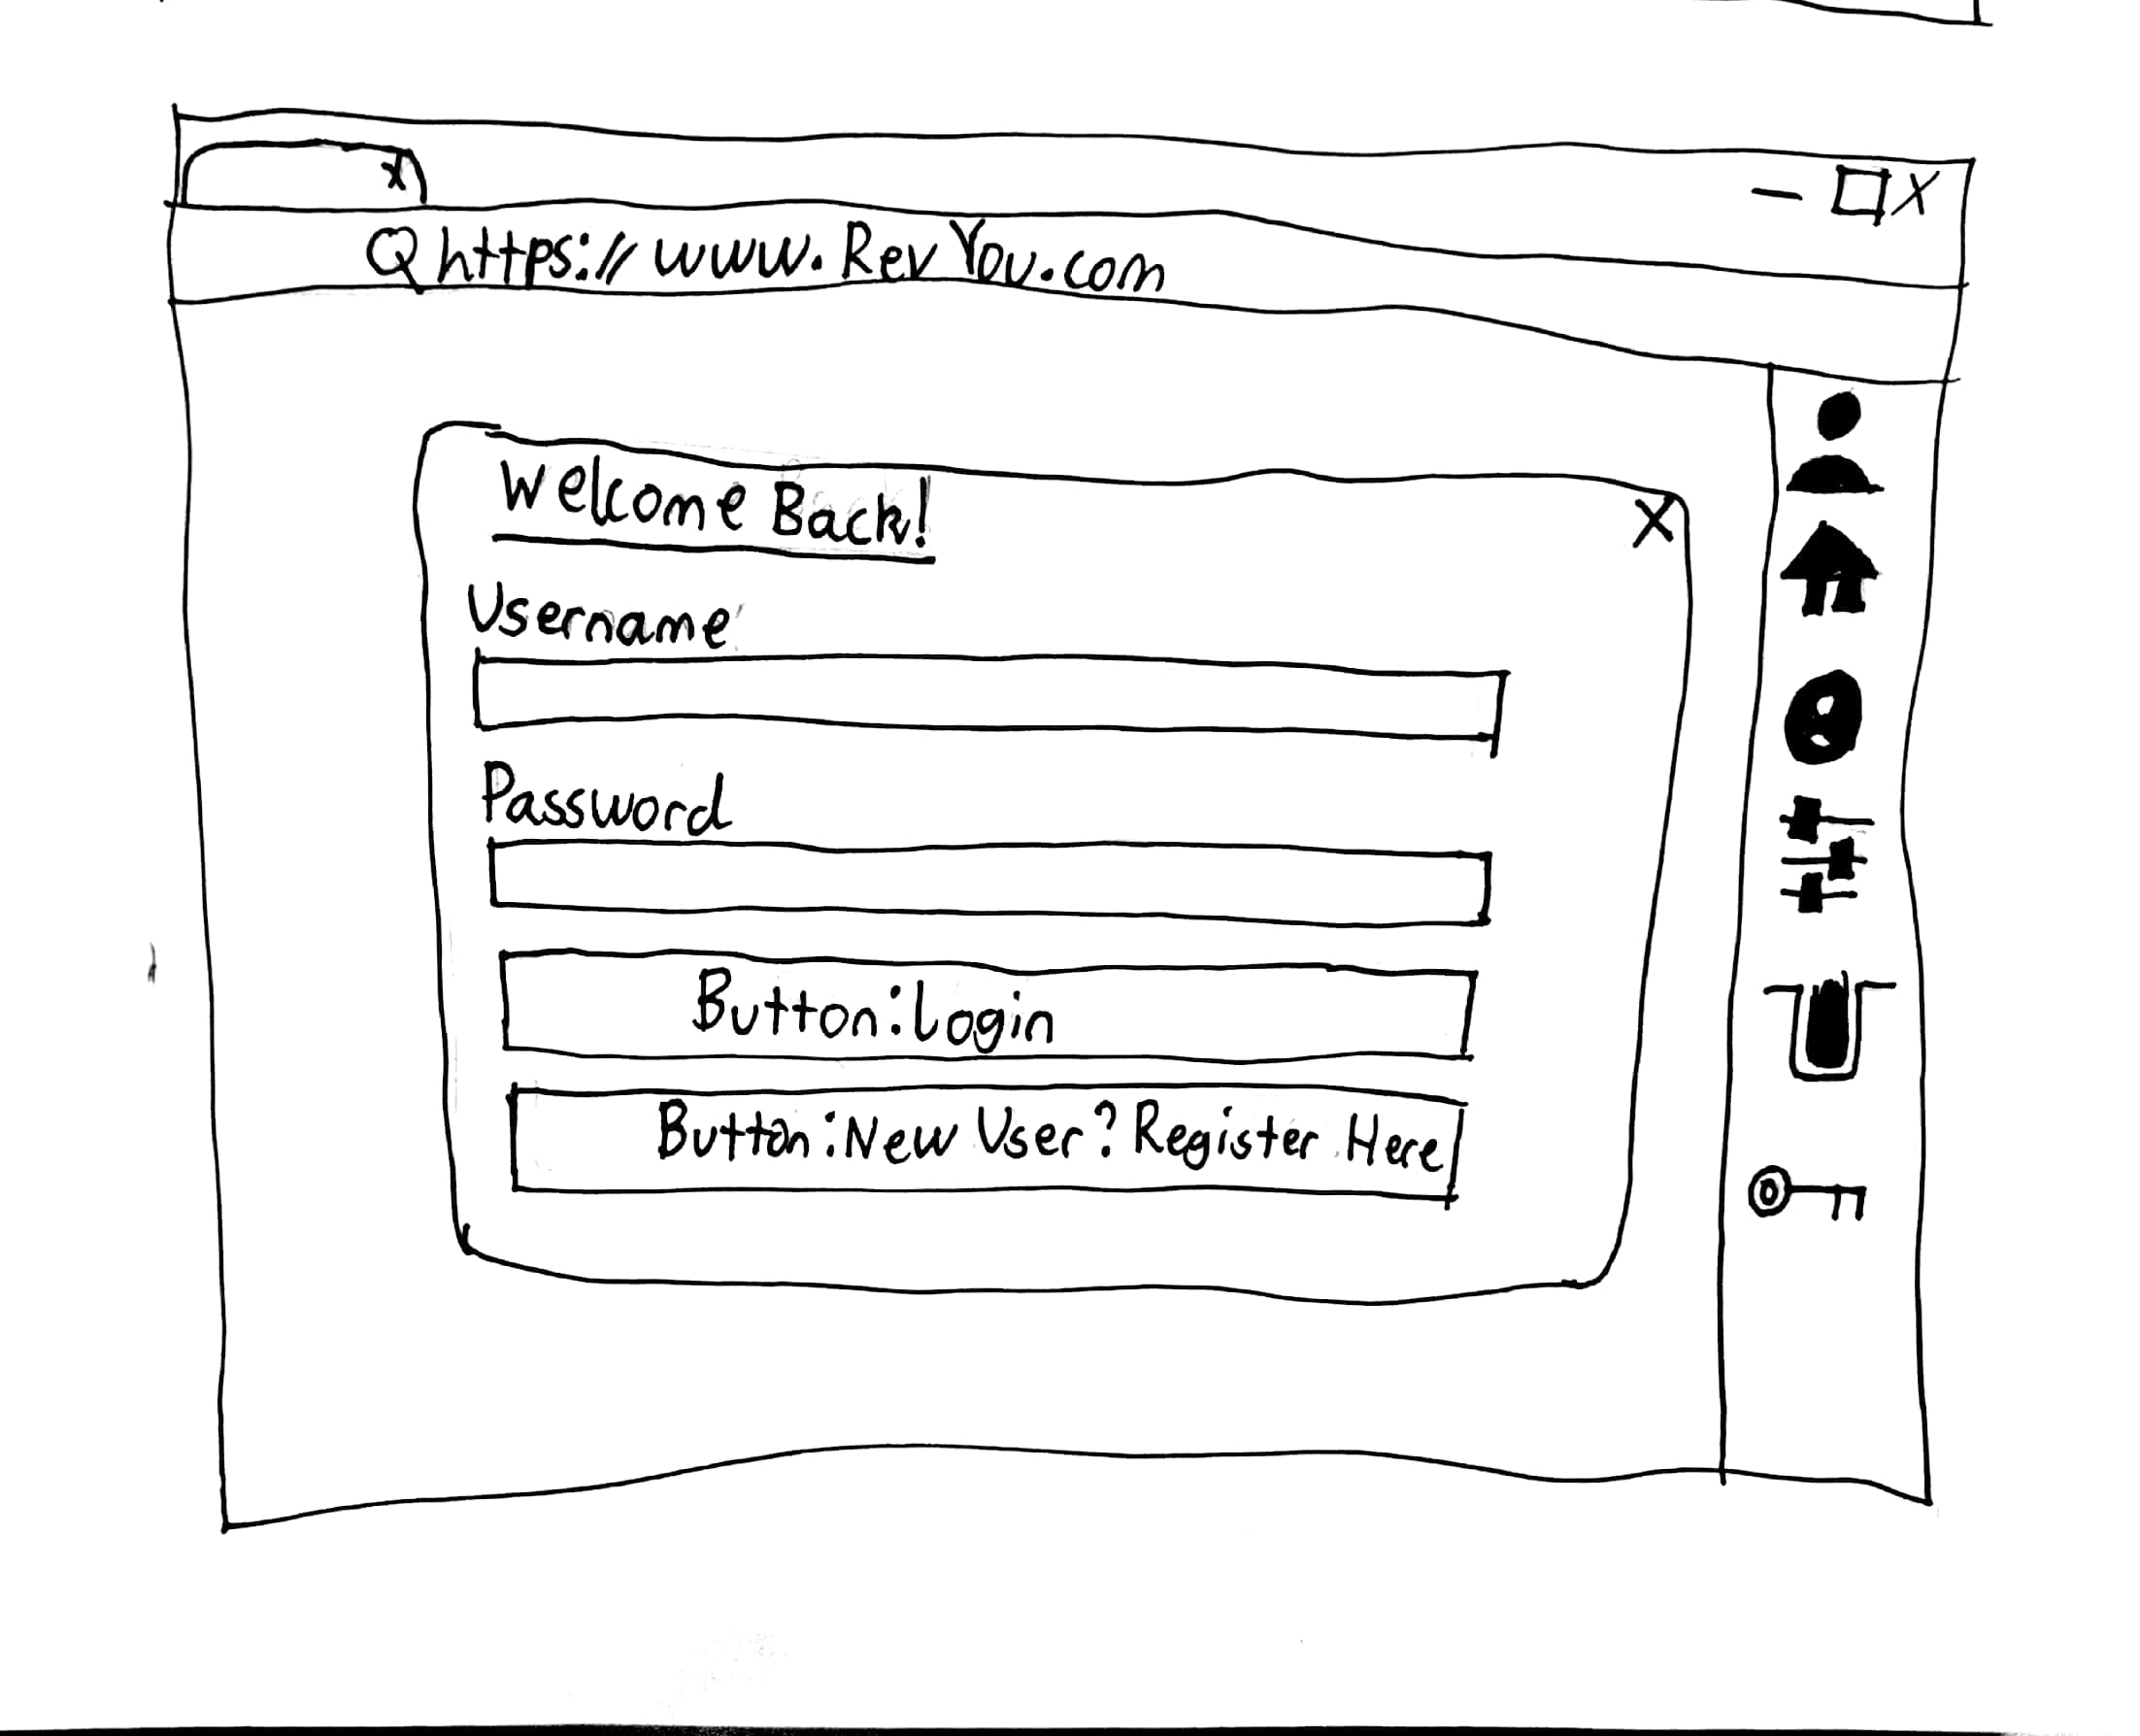 https://www.RevYou.com
Welcome Back!
Username
Password
Button:Login
Button:New User? Register Here